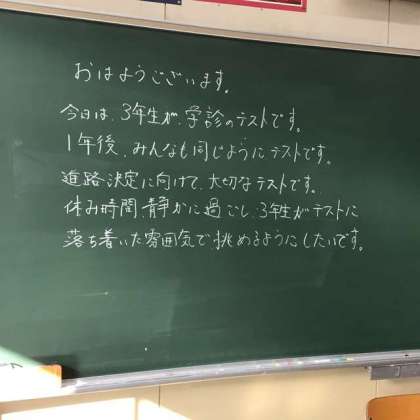 おはようございます。
今日は、3年生が、学診のテストです。
1年後、みんなも同じようにテストです。
進路決定に向けて、大切なテストです。
休み時間、静かに過ごし、3年生がテストに
落ち着いた雰囲気で挑めるようにしたいです。